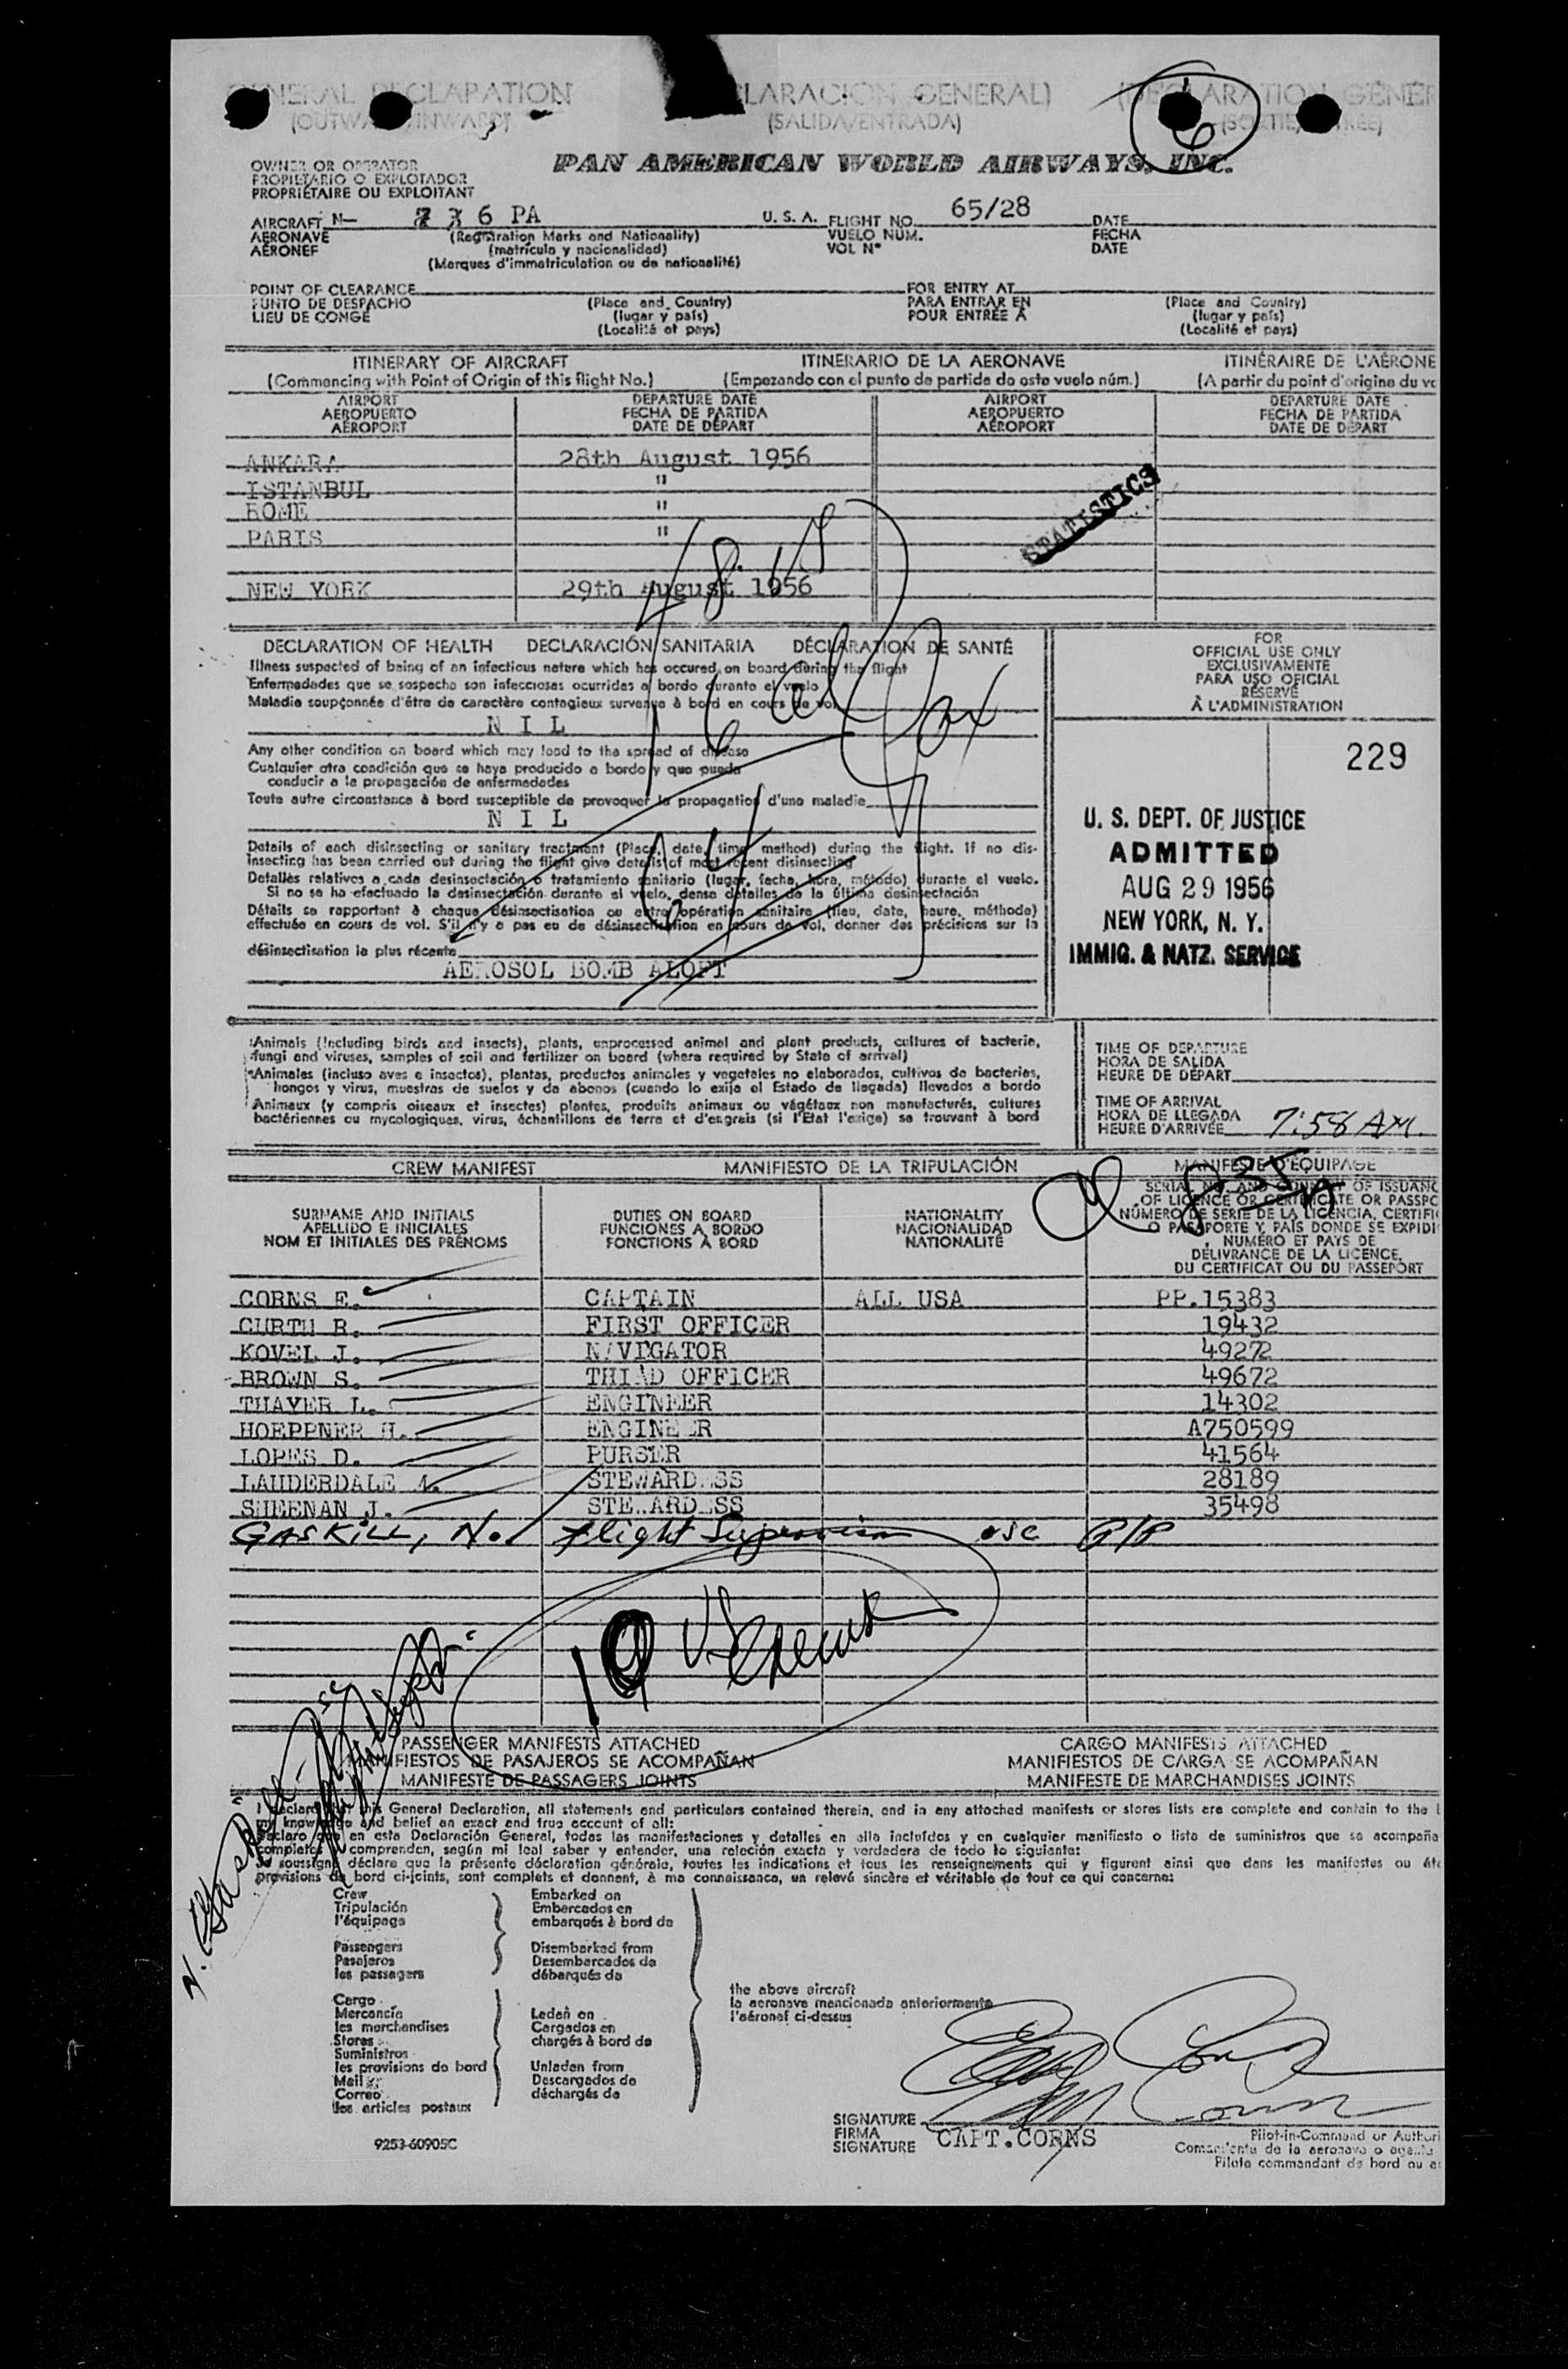 GENERAL DECLARATION (DECLARACION GENERAL) (DÉCLARATION GÉNÉR
(OUTWARD/INWARD) (SALIDA/ENTRADA) (SORTIE/ENTRÉE)
6
OWNER OR OPERATOR
PROPIETARIO O EXPLOTADOR
PROPRIÉTAIRE OU EXPLOITANT
PAN AMERICAN WORLD AIRWAYS, INC.
AIRCRAFT N— 6 PA U. S. A. FLIGHT NO. 65/28 DATE
AERONAVE (Registration Marks and Nationality) VUELO NUM. FECHA
AÉRONEF (matrícula y nacionalidad) VOL N° DATE
(Marques d'immatriculation ou de nationalité)
POINT OF CLEARANCE FOR ENTRY AT
PUNTO DE DESPACHO (Place and Country) PARA ENTRAR EN (Place and Country)
LIEU DE CONGÉ (lugar y país) POUR ENTRÉE À (lugar y país)
(Localité et pays) (Localité et pays)
ITINERARY OF AIRCRAFT ITINERARIO DE LA AERONAVE ITINÉRAIRE DE L'AÉRONE
(Commencing with Point of Origin of this flight No.) (Empezando con el punto de partida de este vuelo núm.) (A partir du point d'origine du vo
AIRPORT DEPARTURE DATE AIRPORT DEPARTURE DATE
AEROPUERTO FECHA DE PARTIDA AEROPUERTO FECHA DE PARTIDA
AÉROPORT DATE DE DÉPART AÉROPORT DATE DE DÉPART
ANKARA 28th August 1956
ISTANBUL "
ROME "
PARIS "
STATISTICS
NEW YORK 29th August 1956
DECLARATION OF HEALTH DECLARACIÓN SANITARIA DÉCLARATION DE SANTÉ
Illness suspected of being of an infectious nature which has occured on board during the flight
Enfermedades que se sospecha son infecciosas ocurridas a bordo durante el vuelo
Maladie soupçonnée d'être de caractère contagieux survenue à bord en cours de vol
N I L
Any other condition on board which may lead to the spread of disease
Cualquier otra condición que se haya producido a bordo y que pueda
conducir a la propagación de enfermedades
Toute autre circonstance à bord susceptible de provoquer la propagation d'une maladie
N I L
Details of each disinsecting or sanitary treatment (Place, date, time, method) during the flight. If no dis-
insecting has been carried out during the flight give details of most recent disinsecting
Detalles relativos a cada desinsectación o tratamiento sanitario (lugar, fecha, hora, método) durante el vuelo.
Si no se ha efectuado la desinsectación durante el vuelo, dense detalles de la última desinsectación
Détails se rapportant à chaque désinsectisation ou autre opération sanitaire (lieu, date, heure, méthode)
effectuée en cours de vol. S'il n'y a pas eu de désinsectisation en cours de vol, donner des précisions sur la
désinsectisation la plus récente
AEROSOL BOMB ALOFT
FOR
OFFICIAL USE ONLY
EXCLUSIVAMENTE
PARA USO OFICIAL
RÉSERVÉ
À L'ADMINISTRATION
229
U. S. DEPT. OF JUSTICE
ADMITTED
AUG 29 1956
NEW YORK, N. Y.
IMMIG. & NATZ. SERVICE
Animals (Including birds and insects), plants, unprocessed animal and plant products, cultures of bacteria,
fungi and viruses, samples of soil and fertilizer on board (where required by State of arrival)
Animales (incluso aves e insectos), plantas, productos animales y vegetales no elaborados, cultivos de bacterias,
hongos y virus, muestras de suelos y de abonos (cuando lo exija el Estado de llegada) llevados a bordo
Animaux (y compris oiseaux et insectes) plantes, produits animaux ou végétaux non manufacturés, cultures
bactériennes ou mycologiques, virus, échantillons de terre et d'engrais (si l'Etat l'exige) se trouvant à bord
TIME OF DEPARTURE
HORA DE SALIDA
HEURE DE DÉPART
TIME OF ARRIVAL
HORA DE LLEGADA
HEURE D'ARRIVÉE 7:58 AM.
CREW MANIFEST MANIFIESTO DE LA TRIPULACIÓN MANIFESTE D'ÉQUIPAGE
SURNAME AND INITIALS
APELLIDO E INICIALES
NOM ET INITIALES DES PRÉNOMS
DUTIES ON BOARD
FUNCIONES A BORDO
FONCTIONS À BORD
NATIONALITY
NACIONALIDAD
NATIONALITÉ
SERIAL NO. AND COUNTRY OF ISSUANC
OF LICENCE OR CERTIFICATE OR PASSPO
NÚMERO DE SERIE DE LA LICENCIA, CERTIFI
O PASAPORTE Y PAÍS DONDE SE EXPIDI
NUMÉRO ET PAYS DE
DÉLIVRANCE DE LA LICENCE,
DU CERTIFICAT OU DU PASSEPORT
CORNS E. CAPTAIN ALL USA PP.15383
CURTH R. FIRST OFFICER 19432
KOVEL J. NAVIGATOR 49272
BROWN S. THIRD OFFICER 49672
THAYER L. ENGINEER 14302
HOEPPNER H. ENGINEER A750599
LOPES D. PURSER 41564
LAUDERDALE STEWARDESS 28189
SHEENAN J. STEWARDESS 35498
GASKILL, N. Flight Supervision usc P/P
10
PASSENGER MANIFESTS ATTACHED
MANIFIESTOS DE PASAJEROS SE ACOMPAÑAN
MANIFESTE DE PASSAGERS JOINTS
CARGO MANIFESTS ATTACHED
MANIFIESTOS DE CARGA SE ACOMPAÑAN
MANIFESTE DE MARCHANDISES JOINTS
I declare that this General Declaration, all statements and particulars contained therein, and in any attached manifests or stores lists are complete and contain to the
my knowledge and belief an exact and true account of all:
Declaro que en esta Declaración General, todas las manifestaciones y detalles en ella incluídos y en cualquier manifiesto o lista de suministros que se acompaña
completos y comprenden, según mi leal saber y entender, una relación exacta y verdadera de todo lo siguiente:
Je soussigné déclare que la présente déclaration générale, toutes les indications et tous les renseignements qui y figurent ainsi que dans les manifestes ou éta
provisions de bord ci-joints, sont complets et donnent, à ma connaissance, un relevé sincère et véritable de tout ce qui concerne:
Crew
Tripulación
l'équipage
Passengers
Pasajeros
les passagers
Cargo
Mercancía
les marchandises
Stores
Suministros
les provisions de bord
Mail
Correo
les articles postaux
Embarked on
Embarcados en
embarqués à bord de
Disembarked from
Desembarcados de
débarqués de
Laden on
Cargados en
chargés à bord de
Unladen from
Descargados de
déchargés de
the above aircraft
la aeronave mencionada anteriormente
l'aéronef ci-dessus
SIGNATURE
FIRMA
SIGNATURE
CAPT.CORNS
Pilot-in-Command or Authori
Comandante de la aeronave o
Pilote commandant de bord ou
9253-60905C